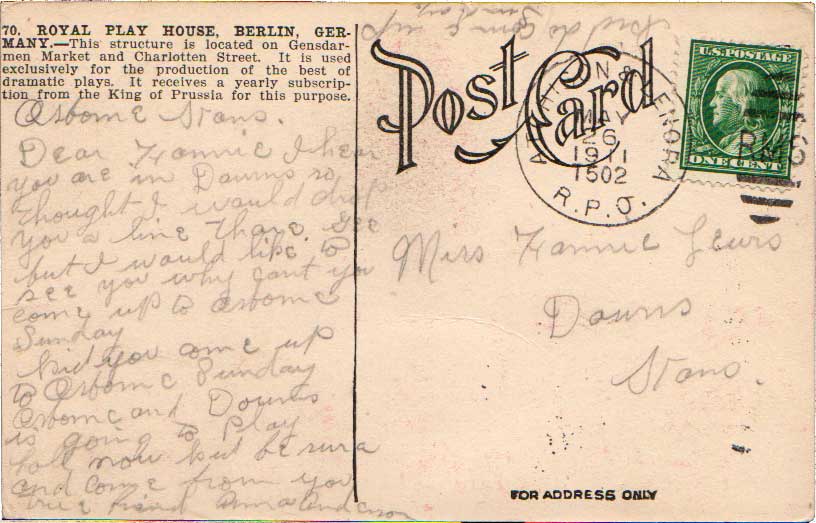 70. ROYAL PLAY HOUSE, BERLIN, GER-
MANY.—This structure is located on Gensdar-
men Market and Charlotten Street. It is used
exclusively for the production of the best of
dramatic plays. It receives a yearly subscrip-
tion from the King of Prussia for this purpose.
Osborne Kans.
Dear Fannie I hear
you are in Downs so
thought I would drop
you a line thare. Gee
but I would like to
see you why cant you
come up to Osborne
Sunday
kid you come up
to Osborne Sunday
Osborne and Downs
is going to play
ball now kid be sure
and come from you
true friend Anna Anderson
kid do come up
Sunday.
Post Card
U.S. POSTAGE
ONE CENT
& LENORA
MAY
26
1911
1502
R.P.O.
RMS
Miss Fannie Lewis
Downs
Kans.
FOR ADDRESS ONLY